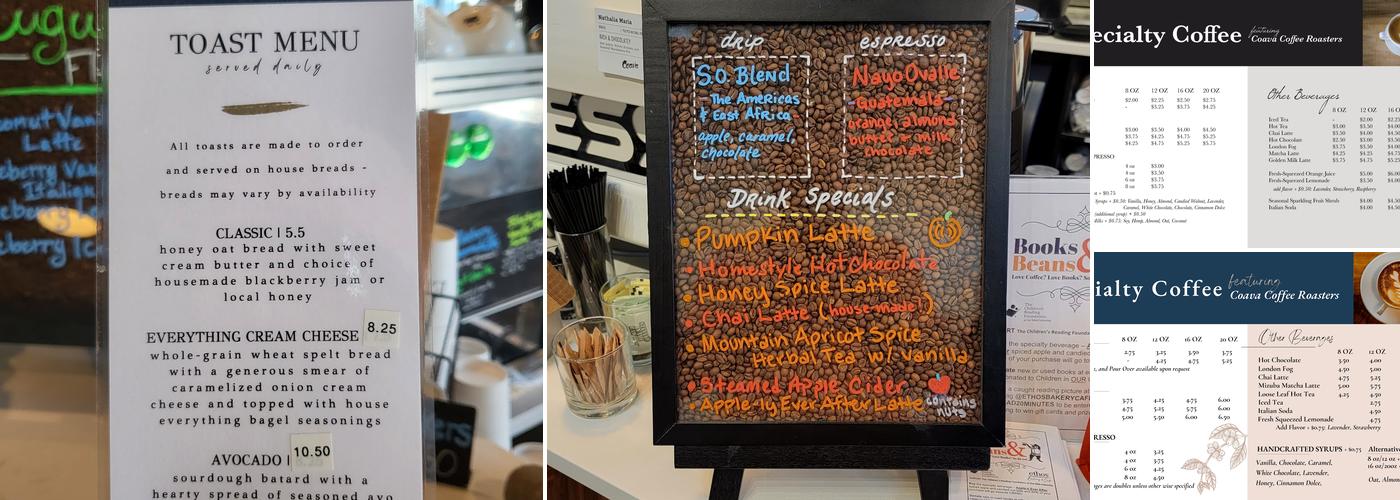 TOAST MENU
served daily
All toasts are made to order
and served on house breads -
breads may vary by availability
CLASSIC | 5.5
honey oat bread with sweet
cream butter and choice of
housemade blackberry jam or
local honey
EVERYTHING CREAM CHEESE 8.25
whole-grain wheat spelt bread
with a generous smear of
caramelized onion cream
cheese and topped with house
everything bagel seasonings
AVOCADO | 10.50
sourdough batard with a
hearty spread of seasoned avo
Latte
Italian
Nathalia Maria
drip
S.O. Blend
- The Americas
& East Africa
apple, caramel,
chocolate
espresso
Nayo Ovalle
Guatemala
orange, almond
butter & milk
chocolate
Drink Specials
• Pumpkin Latte
• Homestyle Hot Chocolate
• Honey Spice Latte
• Chai Latte (house-made!)
• Mountain Apricot Spice
Herbal Tea w/ Vanilla
• Steamed Apple Cider
• Apple-ly Ever After Latte contains
nuts
Books &
Beans
Love Coffee? Love Books?
ecialty Coffee featuring
Coava Coffee Roasters
8 OZ 12 OZ 16 OZ 20 OZ
$2.00 $2.25 $2.50 $2.75
- $3.25 $3.75 $4.25
$3.00 $3.50 $4.00 $4.50
$3.75 $4.25 $4.75 $5.25
$4.25 $4.75 $5.25 $5.75
PRESSO
4 oz $3.00
4 oz $3.50
6 oz $3.75
8 oz $3.75
+ $0.75
Syrups + $0.50: Vanilla, Honey, Almond, Candied Walnut, Lavender,
Caramel, White Chocolate, Chocolate, Cinnamon Dolce
(additional syrup) + $0.50
Milks + $0.75: Soy, Hemp, Almond, Oat, Coconut
Other Beverages
8 OZ 12 OZ 16 O
Iced Tea - $2.50 $3.00
Hot Tea $3.00 $3.50 $4.00
Chai Latte $3.50 $4.00 $4.50
Hot Chocolate $2.50 $3.00 $3.50
London Fog $3.75 $3.50 $3.75
Matcha Latte $4.25 $4.25 $4.75
Golden Milk Latte $3.75 $4.75 $5.25
Fresh-Squeezed Orange Juice $5.00 $6.00
Fresh-Squeezed Lemonade $3.50 $4.00
add flavor + $0.50: Lavender, Strawberry, Raspberry
Seasonal Sparkling Fruit Shrub $4.00 $4.50
Italian Soda $4.00 $4.50
ialty Coffee featuring
Coava Coffee Roasters
8 OZ 12 OZ 16 OZ 20 OZ
2.75 3.25 3.50 3.75
- 4.25 4.75 5.25
and Pour Over available upon request
3.75 4.25 4.75 6.00
4.75 5.25 5.75 6.00
5.00 5.50 6.00 6.50
RESSO
4 oz 3.25
4 oz 3.75
6 oz 4.25
8 oz 4.50
ges are doubles unless other wise specified
Other Beverages
8 OZ 12 OZ
Hot Chocolate 3.50 4.00
London Fog 4.50 5.00
Chai Latte 4.75 5.25
Mizuba Matcha Latte 5.00 5.75
Loose Leaf Hot Tea 4.25 4.50
Iced Tea 2.75
Italian Soda 4.50
Fresh Squeezed Lemonade 4.75
Add Flavor + $0.75: Lavender, Strawberry
HANDCRAFTED SYRUPS + $0.75
Vanilla, Chocolate, Caramel,
White Chocolate, Lavender,
Honey, Cinnamon Dolce,
Alternativ
8 oz/12 oz
16 oz/20oz
Oat, Almo